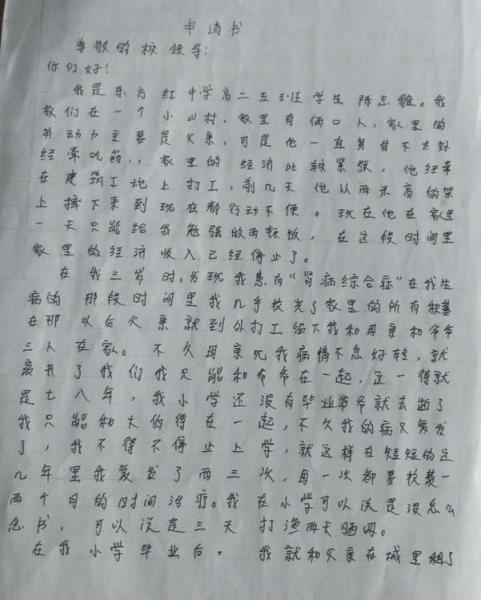 申请书
尊敬的校领导:
你们好!
我是东方红中学高二五班学生陈志雅。我
家们在一个小山村,家里有俩口人,家里的
劳动力主要是父亲,可是他一直身体不太好
经常吃药,,家里的经济比较紧张,他经常
在建筑工地上打工,前几天他从两米高的架
上摔下来到现在都行动不便。现在他在家里
一天只能给我勉强做两顿饭,在这段时间里
家里的经济收入已经停止了。
在我三岁时,发现我患有“肾病综合症”在我生
病的那段时间里我几乎校光了家里的所有积蓄
在那以后父亲就到外打工留下我和母亲和爷爷
三人在家。不久母亲见我病情不怎好转,就
离开了我们我只能和爷爷在一起,这一待就
是七八年,我小学还没有毕业爷爷就去逝了
我只能和大伯待在一起,不久我的病又复发
了,我不得不停止上学,就这样在短短的这
几年里我复发了两三次,每一次都要校费一
两个月的时间治疗。我在小学可以说是没怎么
念书,可以说是三天打渔两天晒网。
在我小学毕业后,我就和父亲在城里租了